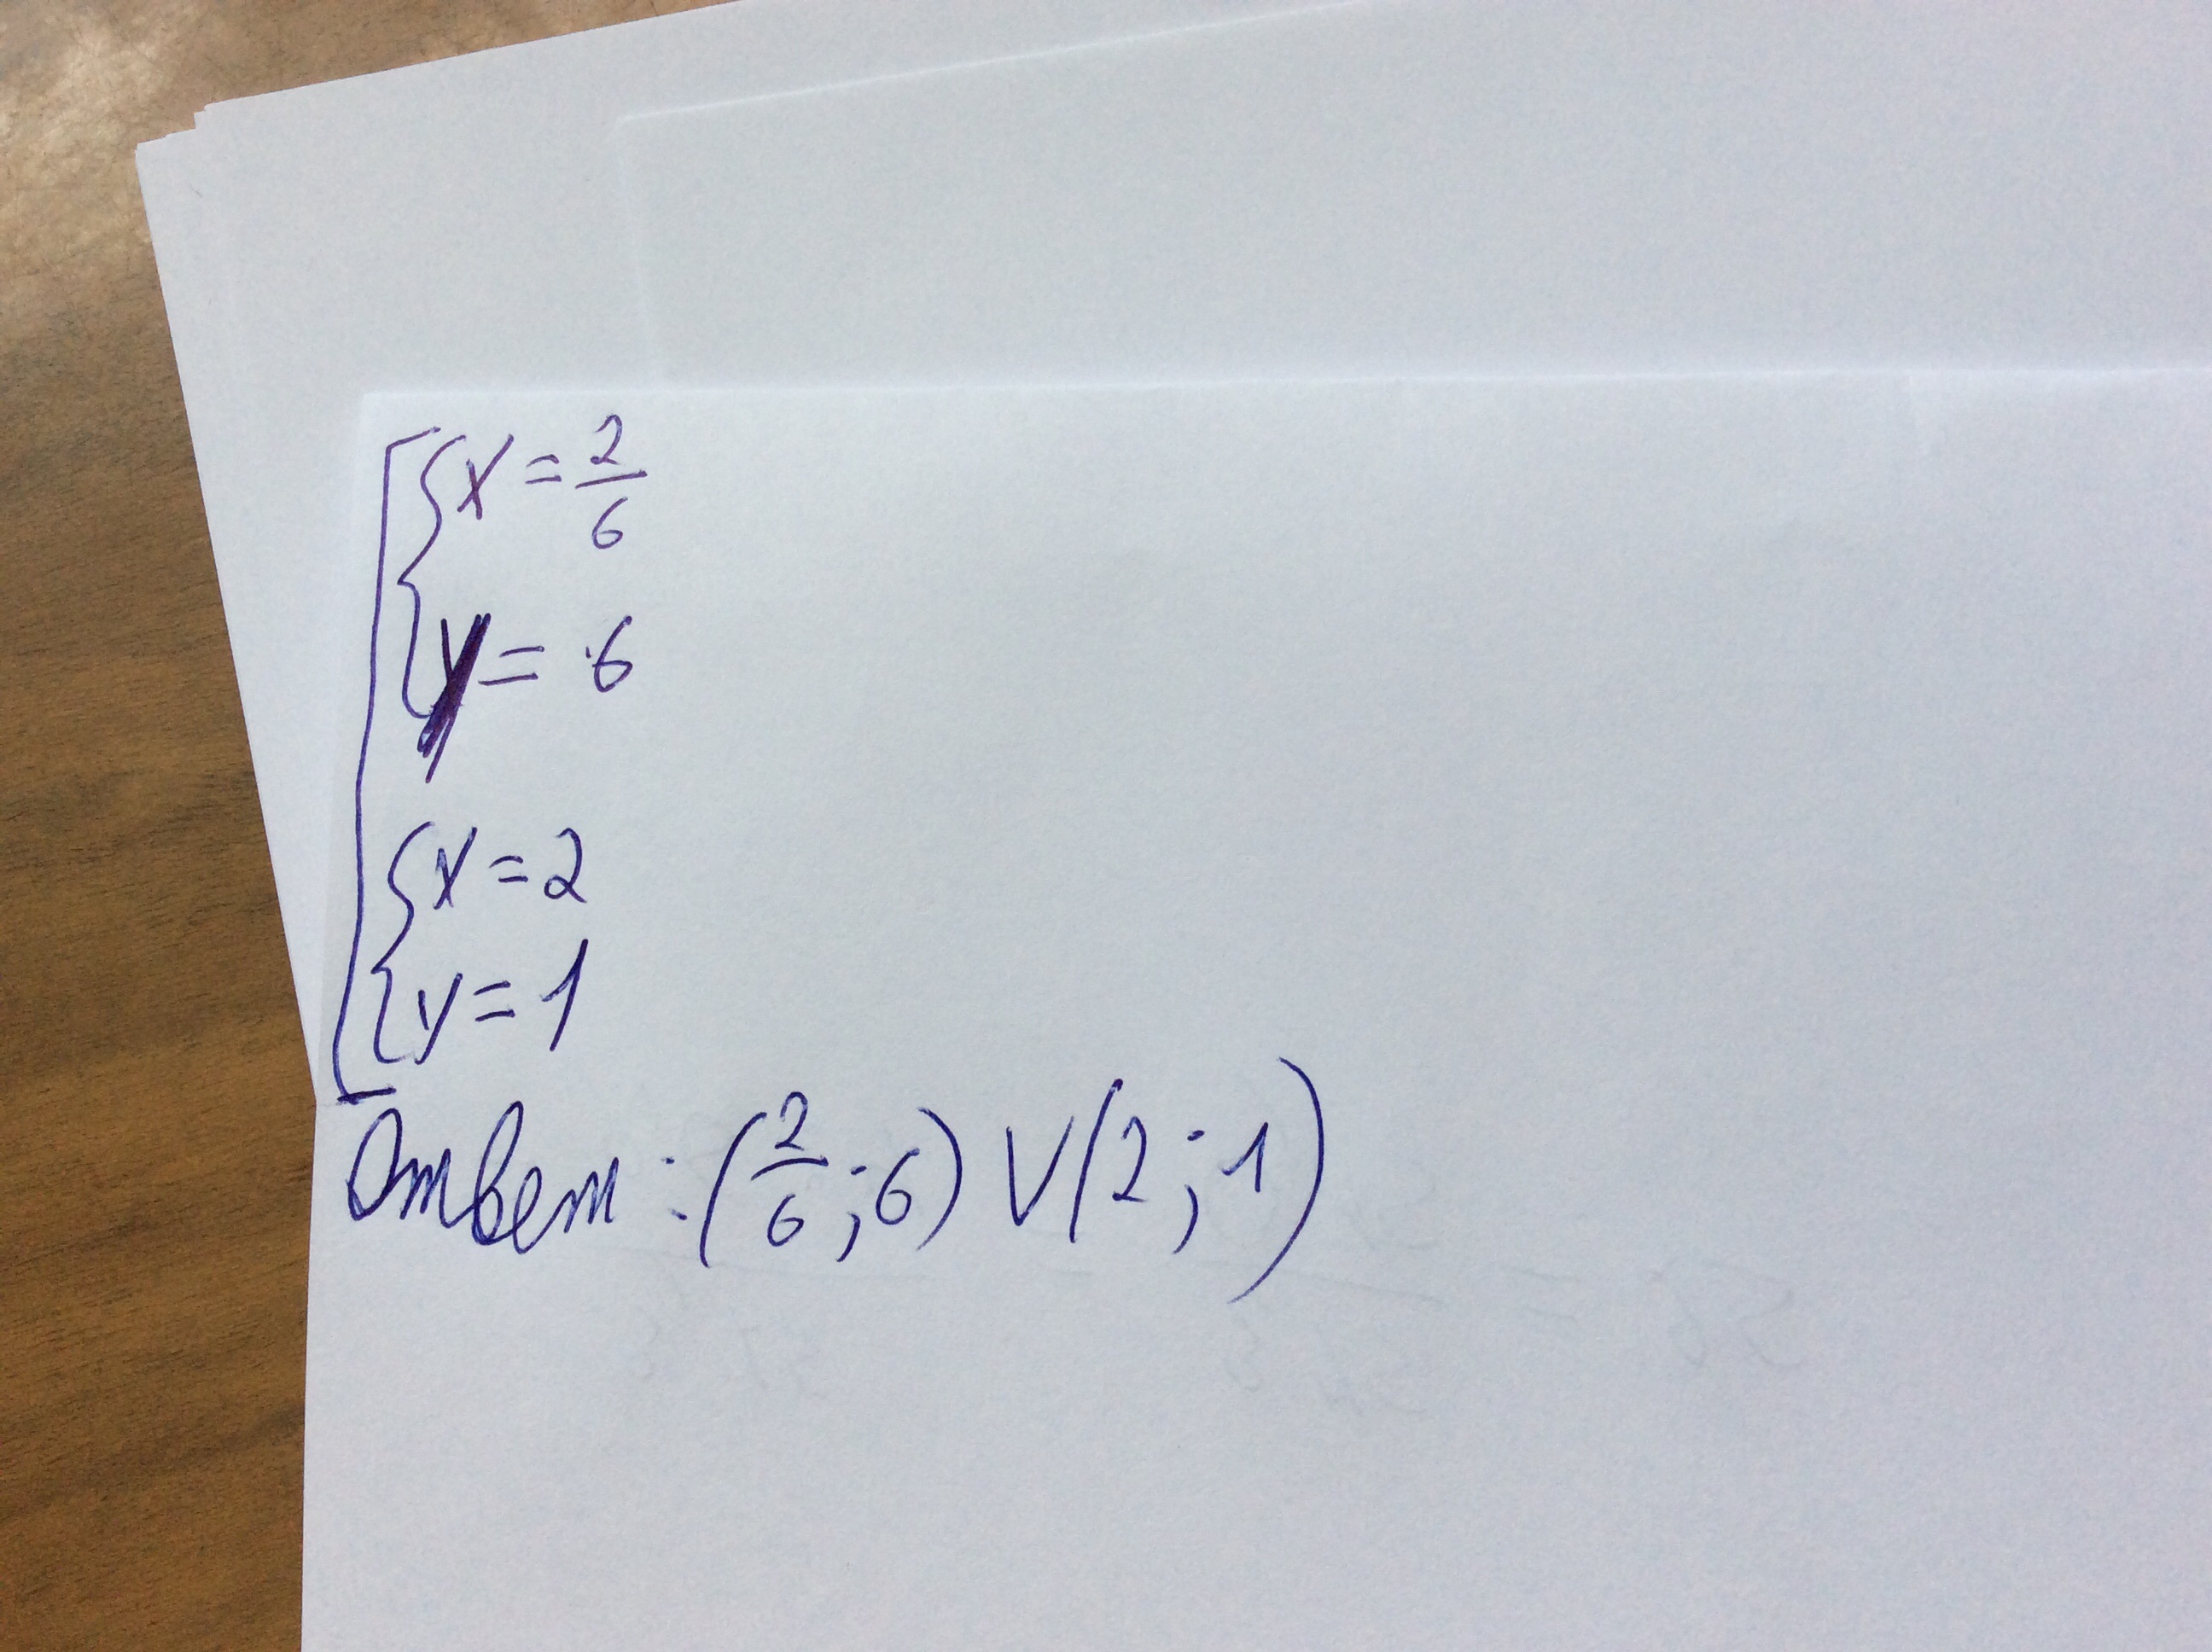 [ { x = 2/6
y = 6
{ x = 2
y = 1
Ответ : (2/6 ; 6) V (2 ; 1)